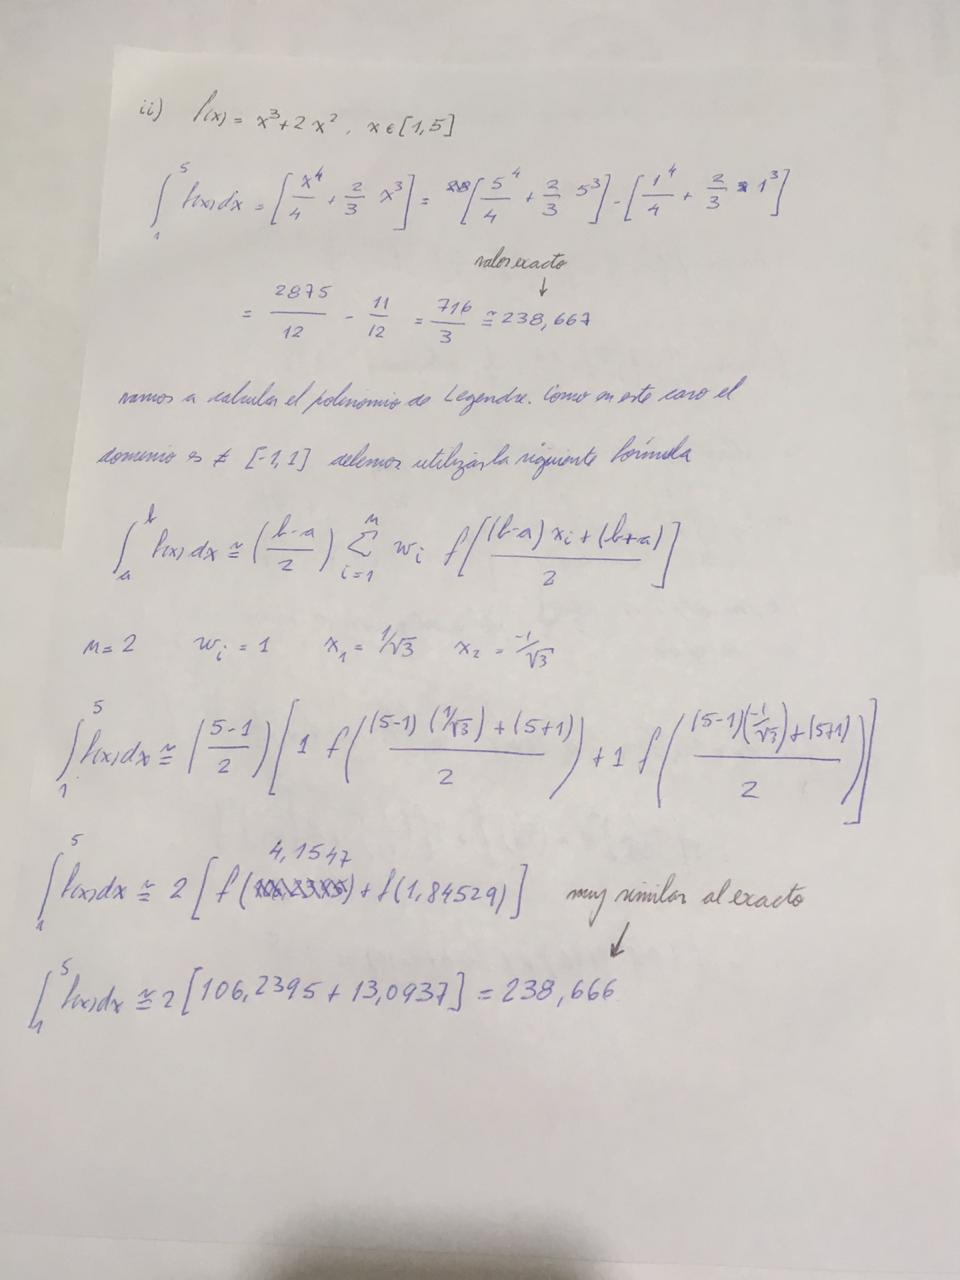 ii) f(x) = x³+2x², x ∈ [1,5]
∫₁⁵ f(x) dx = [x⁴/4 + 2/3 x³] = [5⁴/4 + 2/3 5³] - [1⁴/4 + 2/3 1³]
valor exacto
↓
= 2875/12 - 11/12 = 716/3 ≅ 238,667
vamos a calcular el polinomio de Legendre. Como en este caso el
dominio es ≠ [-1,1] debemos utilizar la siguiente fórmula
∫ₐᵇ f(x) dx ≅ (b-a/2) Σᵢ₌₁ⁿ wᵢ f[(b-a) xᵢ + (b+a)/2]
n = 2 wᵢ = 1 x₁ = 1/√3 x₂ = -1/√3
∫₁⁵ f(x) dx ≅ (5-1/2) [1 f((5-1) (1/√3) + (5+1)/2) + 1 f((5-1)(-1/√3) + (5+1)/2)]
∫₁⁵ f(x) dx ≅ 2 [f(4,1547) + f(1,84529)] muy similar al exacto
↓
∫₁⁵ f(x) dx ≅ 2 [106,2395 + 13,0937] = 238,666